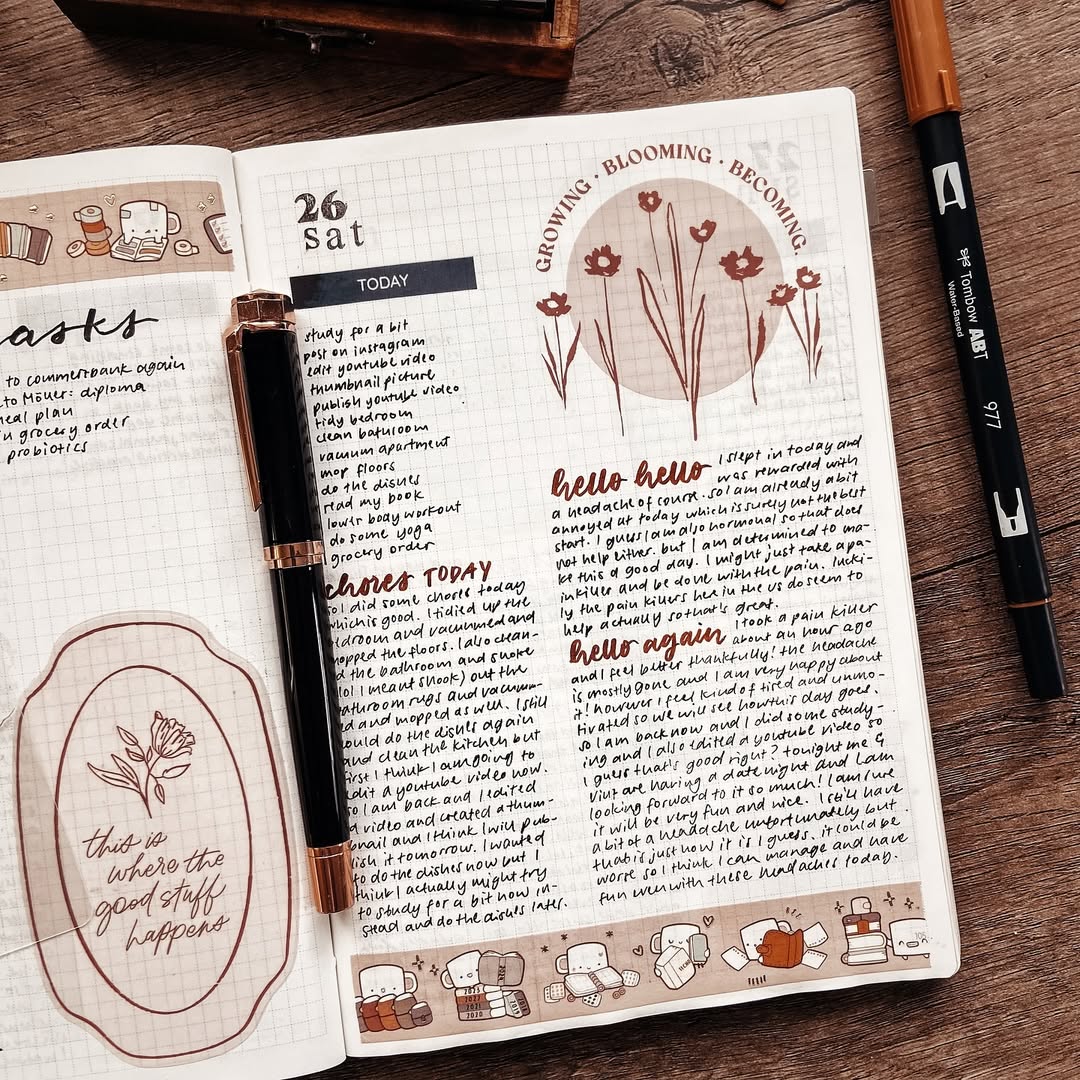 asks
to commerzbank again
to Möller: diploma
meal plan
in grocery order
probiotics
this is
where the
good stuff
happens
26
sat
TODAY
study for a bit
post on instagram
edit youtube video
thumbnail picture
publish youtube video
tidy bedroom
clean bathroom
vacuum apartment
mop floors
do the dishes
read my book
lower body workout
do some yoga
grocery order
chores TODAY
so I did some chores today
which is good. I tidied up the
bedroom and vacuumed and
mopped the floors. I also clean-
ed the bathroom and snoke
(lol I meant shook) out the
bathroom rugs and vacuum-
ed and mopped as well. I still
could do the dishes again
and clean the kitchen but
first I think I am going to
edit a youtube video now.
so I am back and I edited
a video and created a thum-
bnail and I think I will pub-
lish it tomorrow. I wanted
to do the dishes now but I
think I actually might try
to study for a bit now in-
stead and do the dishes later.
GROWING · BLOOMING · BECOMING.
hello hello I slept in today and
was rewarded with
a headache of course. so I am already a bit
annoyed at today which is surely not the best
start. I guess I am also hormonal so that does
not help either. but I am determined to ma-
ke this a good day. I might just take a pa-
inkiller and be done with the pain. lucki-
ly the pain killers here in the us do seem to
help actually so that's great.
hello again I took a pain killer
about an hour ago
and I feel better thankfully! the headache
is mostly gone and I am very happy about
it! however I feel kind of tired and unmo-
tivated so we will see how this day goes.
so I am back now and I did some study-
ing and I also edited a youtube video so
I guess that's good right? tonight me &
vint are having a date night and I am
looking forward to it so much! I am sure
it will be very fun and nice. I still have
a bit of a headache unfortunately but
that is just how it is I guess. it could be
worse so I think I can manage and have
fun even with these headaches today.
2023
2022
2021
2020
105
Tombow ABT
Water-Based
977